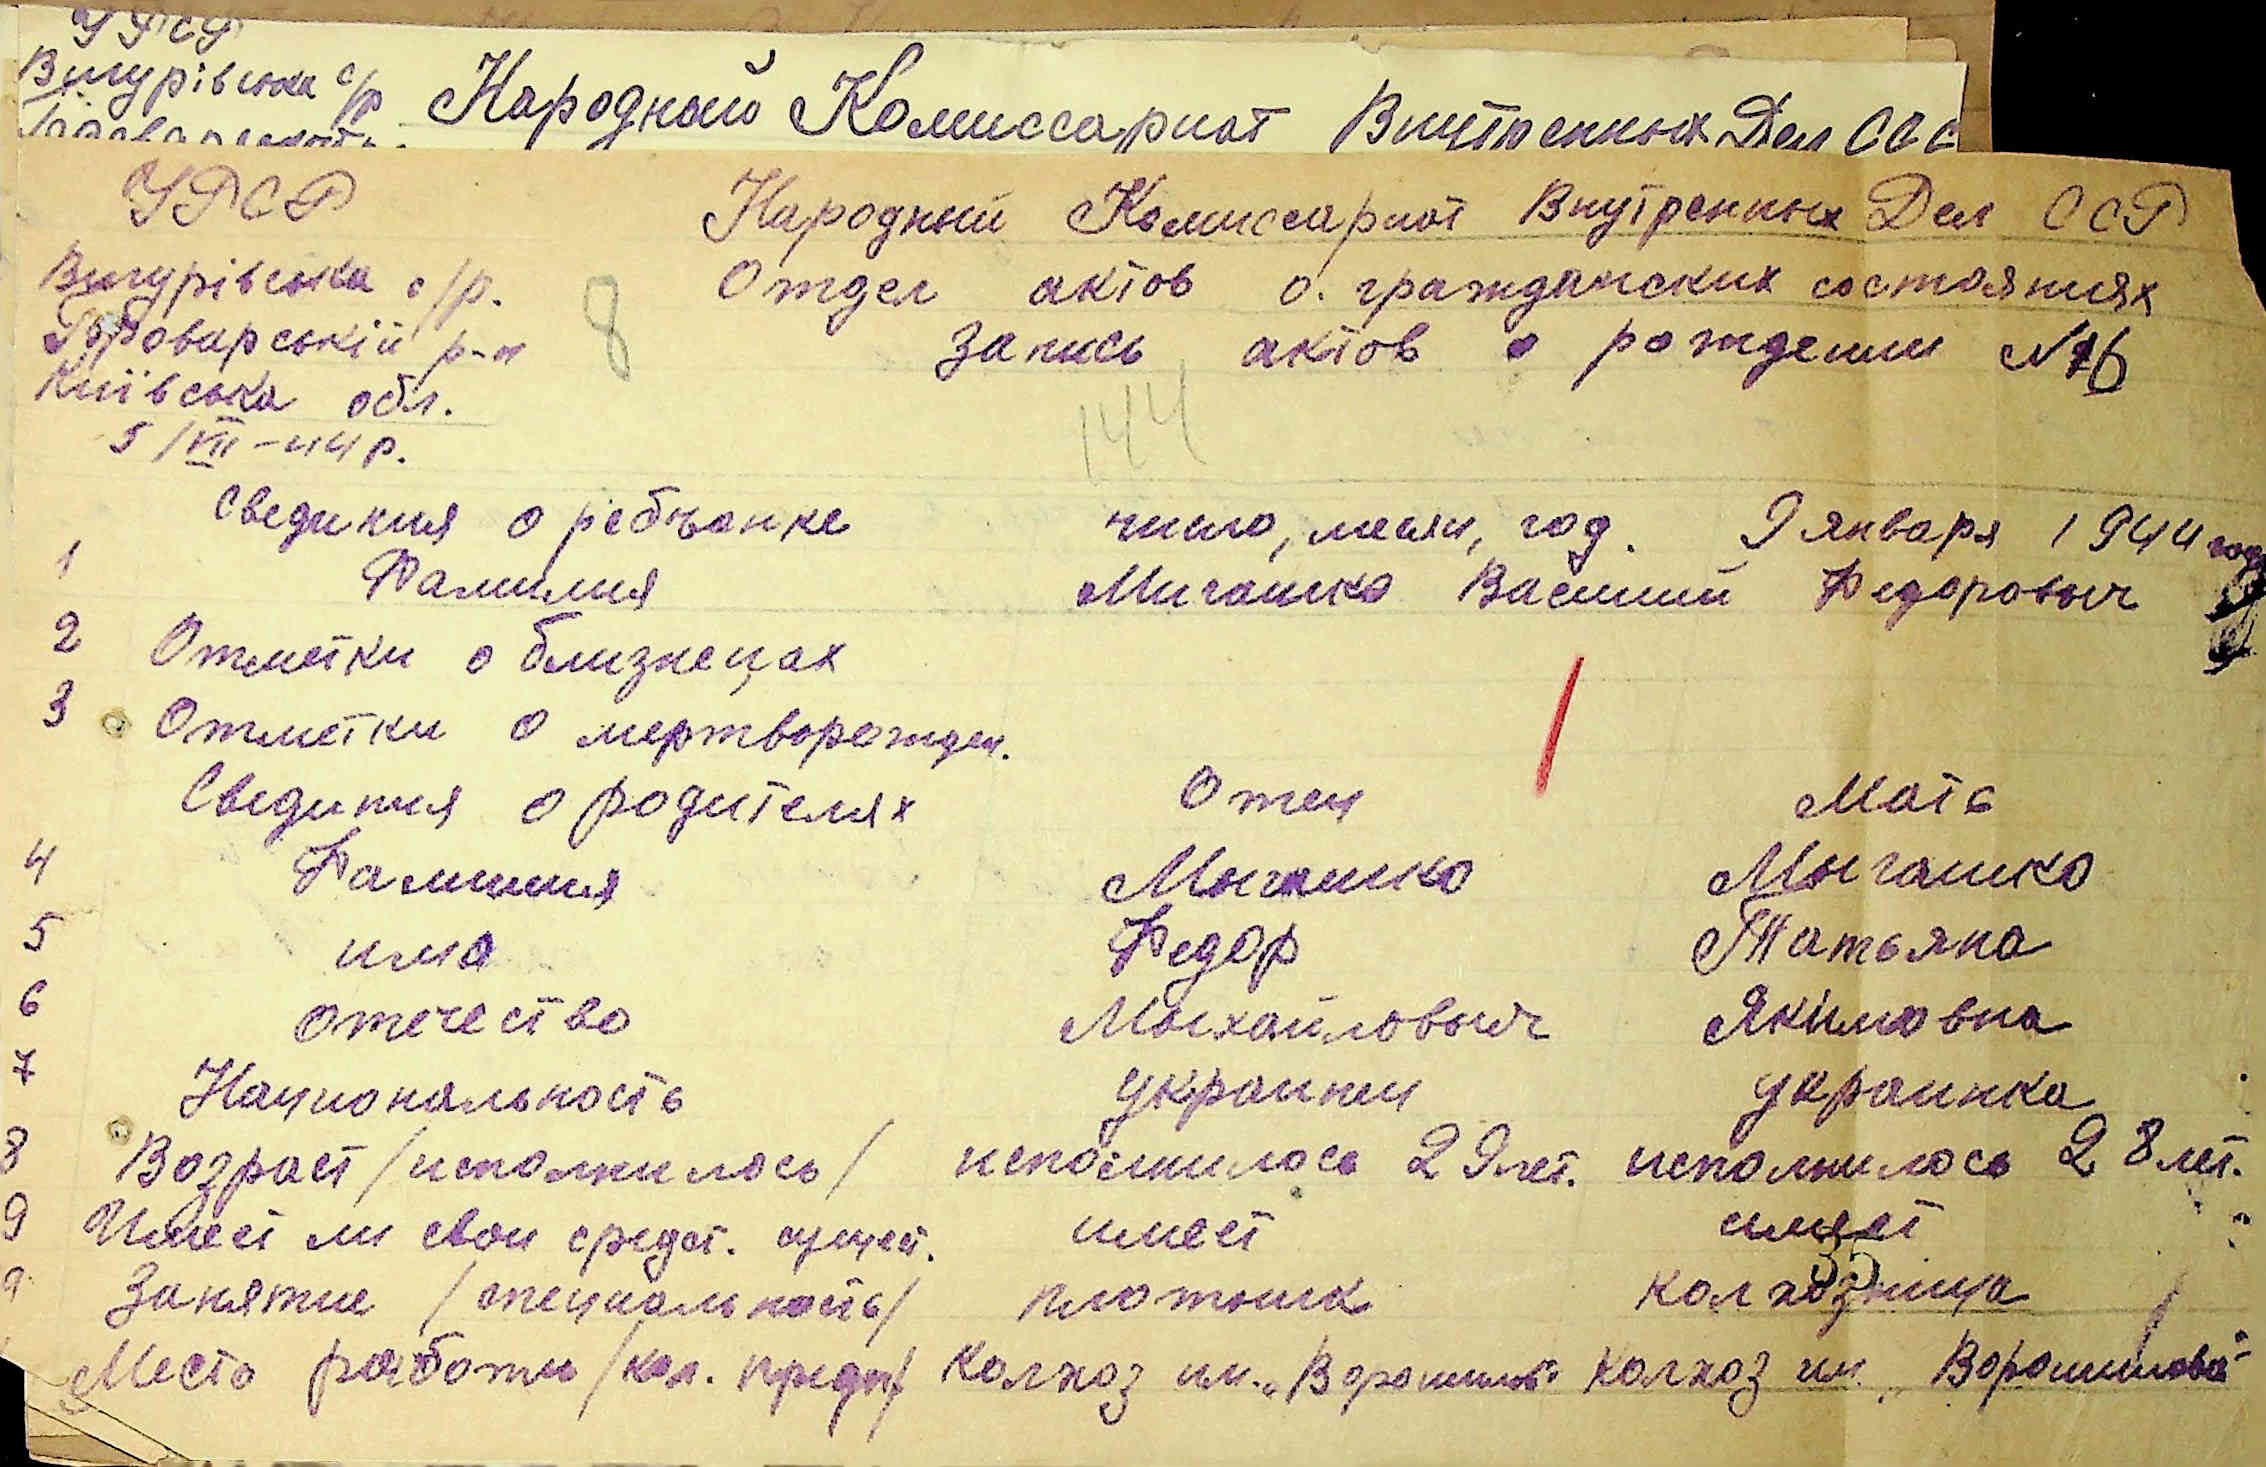 УРСР
Вигурівська с/р
Народный Комиссариат Внутренных Дел ССС
УРСР
Народный Комиссариат Внутренных Дел ССР
Вигурівська с/р.
Отдел актов о. гражданских состояниях
Броварській р-н
8
Запись актов о рождении №16
Київська обл.
5/VII-44р.
144
Свединия о ребъонке число, месяц, год. 9 января 1944 года
1 Фамилия Мигашко Василий Федоровыч
2 Отметки о близнецах
3 Отметки о мертворожден.
Свединия о родителях Отец Мать
4 Фамилия Мыгашко Мыгашко
5 имя Федор Татьяна
6 отечество Мыхайловыч Якимовна
7 Национальность украинец украинка
8 Возраст /исполнилось/ исполнилось 29 лет. исполнилось 28 лет.
9 Имеет ли свои средст. сущест. имеет имеет
35
9 Занятие /специальность/ плотник колхозница
Место работы /каж. предп/ Колхоз им. „Ворошилов" Колхоз им. „Ворошилова"